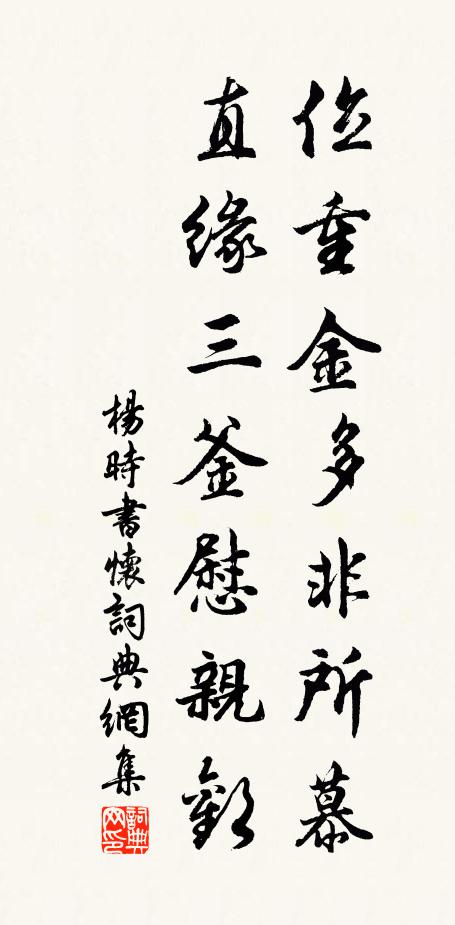 位重金多非所慕
直緣三釜慰親歡
楊時書懷詞典網集
詞典网印